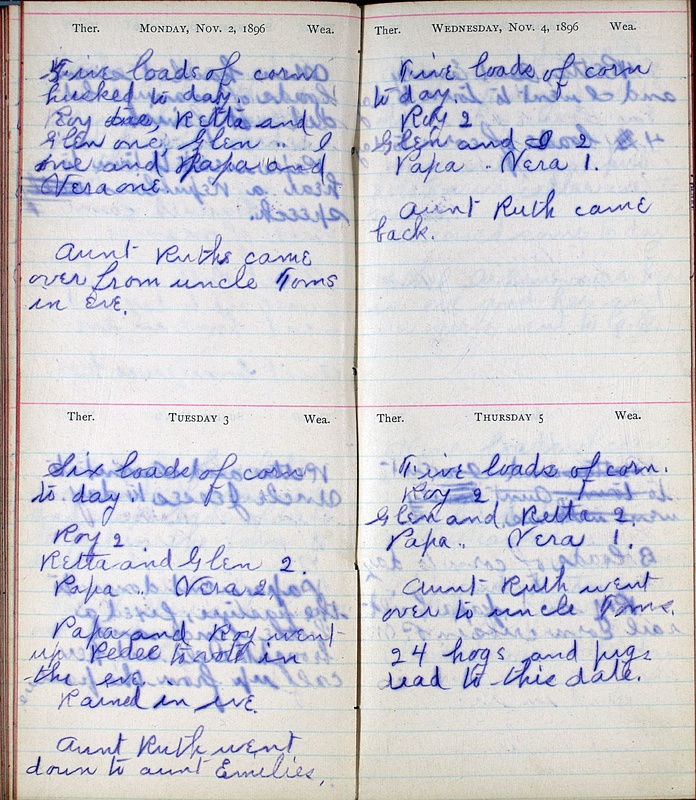 Ther. MONDAY, NOV. 2, 1896 Wea.
Five loads of corn
hucked to day.
Roy two, Retta and
Glen one, Glen " I
one and Papa and
Vera one.
Aunt Ruths came
over from uncle Toms
in eve.
Ther. TUESDAY 3 Wea.
Six loads of corn
to day
Roy 2
Retta and Glen 2.
Papa " Vera 2
Papa and Roy went
up to vote in
the eve.
Rained in eve.
Aunt Ruth went
down to aunt Emelies.
Ther. WEDNESDAY, NOV. 4, 1896 Wea.
Five loads of corn
to day.
Roy 2
Glen and I 2
Papa " Vera 1.
Aunt Ruth came
back.
Ther. THURSDAY 5 Wea.
Five loads of corn.
Roy 2
Glen and Retta 2.
Papa " Vera 1.
Aunt Ruth went
over to uncle Toms.
24 hogs and pigs
dead to this date.